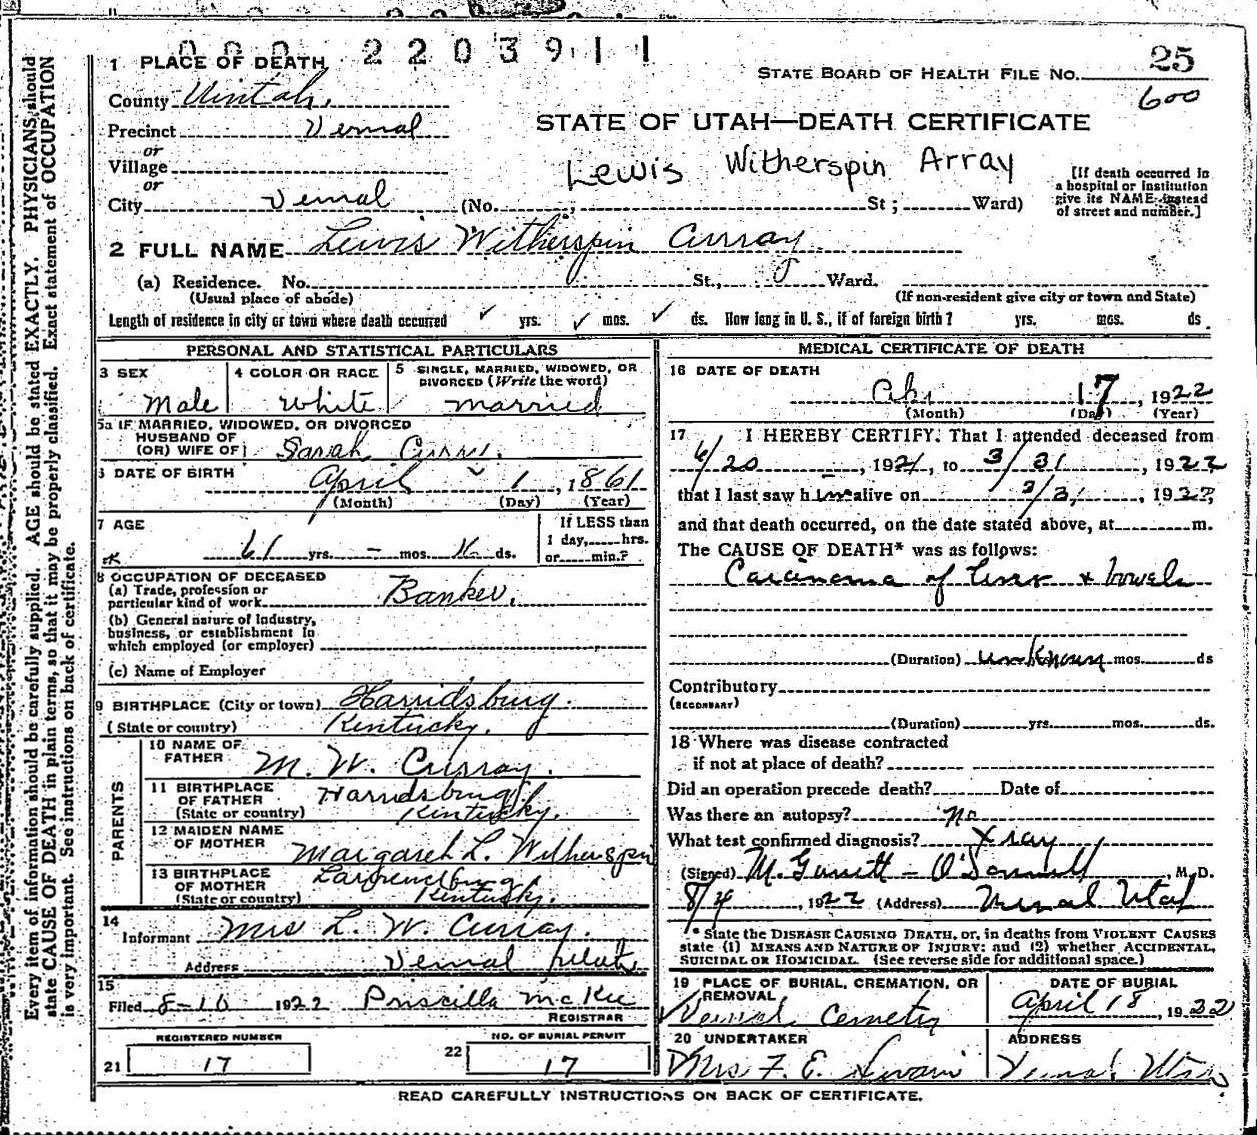 000 2203911
25
1 PLACE OF DEATH
STATE BOARD OF HEALTH FILE No.
600
County Uintah,
STATE OF UTAH—DEATH CERTIFICATE
Precinct Vernal
or
Village
Lewis Witherspin Array
or
City Vernal (No. ; St ; Ward)
[If death occurred in
a hospital or institution
give its NAME instead
of street and number.]
2 FULL NAME Lewis Witherspin Curray
(a) Residence. No. St., Ward.
(Usual place of abode)
(If non-resident give city or town and State)
Length of residence in city or town where death occurred ✓ yrs. ✓ mos. ✓ ds. How long in U. S., if of foreign birth? yrs. mos. ds.
PERSONAL AND STATISTICAL PARTICULARS
3 SEX
Male
4 COLOR OR RACE
White
5 SINGLE, MARRIED, WIDOWED, OR
DIVORCED (Write the word)
married
5a IF MARRIED, WIDOWED, OR DIVORCED
HUSBAND OF
(OR) WIFE OF Sarah
6 DATE OF BIRTH April 1, 1861
(Month) (Day) (Year)
7 AGE
61 yrs. - mos. 16 ds.
If LESS than
1 day, hrs.
or min.?
8 OCCUPATION OF DECEASED
(a) Trade, profession or
particular kind of work Banker.
(b) General nature of industry,
business, or establishment in
which employed (or employer)
(c) Name of Employer
9 BIRTHPLACE (City or town) Harridsburg.
(State or country) Kentucky.
PARENTS
10 NAME OF
FATHER M. W. Curray.
11 BIRTHPLACE
OF FATHER Harridsburg
(State or country) Kentucky.
12 MAIDEN NAME
OF MOTHER Margaret L. Witherspin
13 BIRTHPLACE
OF MOTHER
(State or country) Kentucky.
14
Informant Mrs L. W. Curray.
Address Vernal Utah
15
Filed 8-10 1922 Priscilla McKee
REGISTRAR
REGISTERED NUMBER
21 17
NO. OF BURIAL PERMIT
22 17
MEDICAL CERTIFICATE OF DEATH
16 DATE OF DEATH
17, 1922
(Month) (Day) (Year)
17 I HEREBY CERTIFY, That I attended deceased from
6/20, 1921, to 3/31, 1922
that I last saw him alive on 3/31, 1922,
and that death occurred, on the date stated above, at m.
The CAUSE OF DEATH* was as follows:
Carcinoma of liver & bowels
(Duration) unknown mos. ds
Contributory
(SECONDARY)
(Duration) yrs. mos. ds.
18 Where was disease contracted
if not at place of death?
Did an operation precede death? Date of
Was there an autopsy? No
What test confirmed diagnosis? X ray
(Signed) M. Garrett - O'Donnell, M.D.
8/4, 1922 (Address) Vernal Utah
* State the DISEASE CAUSING DEATH, or, in deaths from VIOLENT CAUSES
state (1) MEANS AND NATURE OF INJURY; and (2) whether ACCIDENTAL,
SUICIDAL OR HOMICIDAL. (See reverse side for additional space.)
19 PLACE OF BURIAL, CREMATION, OR
REMOVAL
Vernal Cemetry
DATE OF BURIAL
April 18, 1922
20 UNDERTAKER
Mrs F. E. Swain
ADDRESS
Vernal Utah
READ CAREFULLY INSTRUCTIONS ON BACK OF CERTIFICATE.
Every item of information should be carefully supplied. AGE should be stated EXACTLY. PHYSICIANS should
state CAUSE OF DEATH in plain terms, so that it may be properly classified. Exact statement of OCCUPATION
is very important. See instructions on back of certificate.